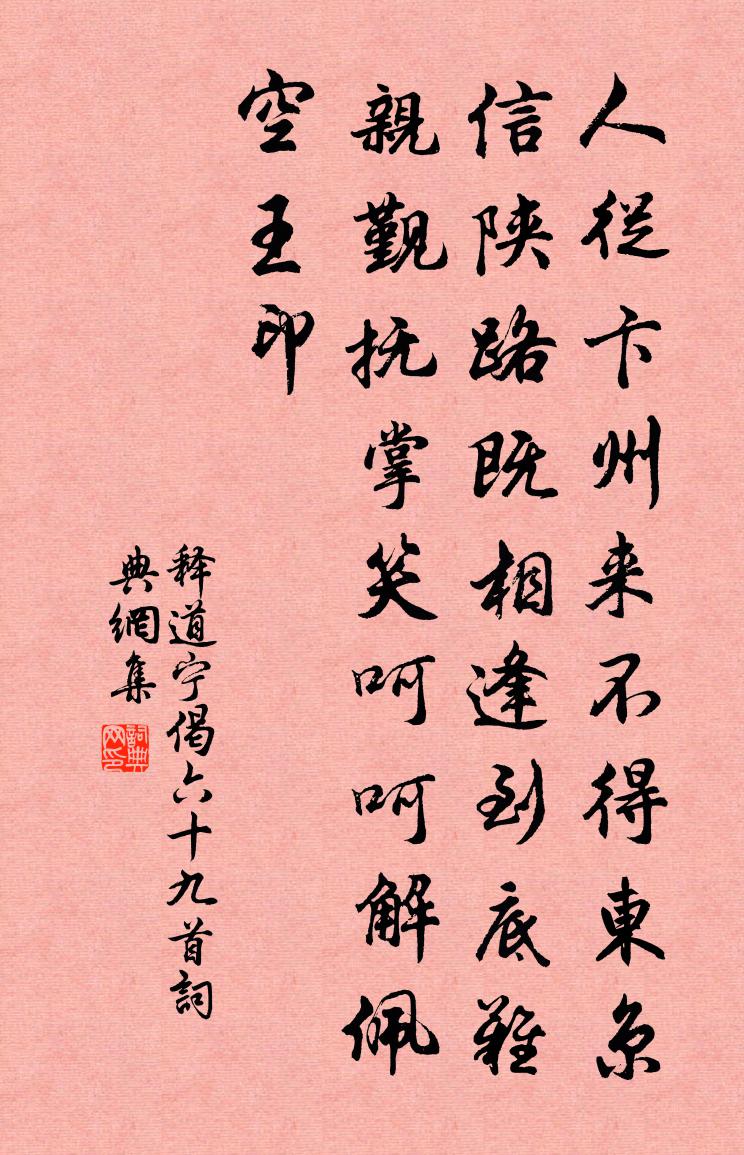 人從卞州来不得東京
信陝路既相逢到底難
親觀抚掌笑呵呵解佩
空王印
释道宁偈六十九首詞
典網集
詞典网印